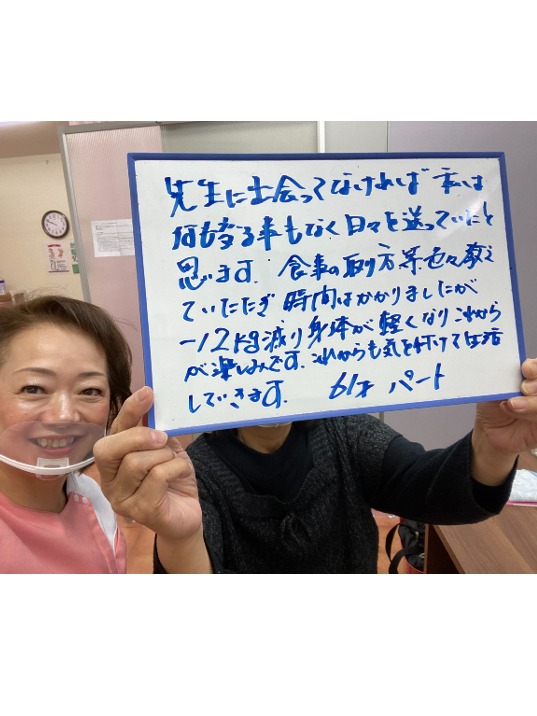 先生に出会ってなければ 私は
何も変る事もなく日々を送っていたと
思います. 食事の取り方等色々教え
ていただき 時間はかかりましたが
-12kg減り身体が軽くなりこれから
が楽しみです. これからも気を付けて生活
していきます. 61才 パート